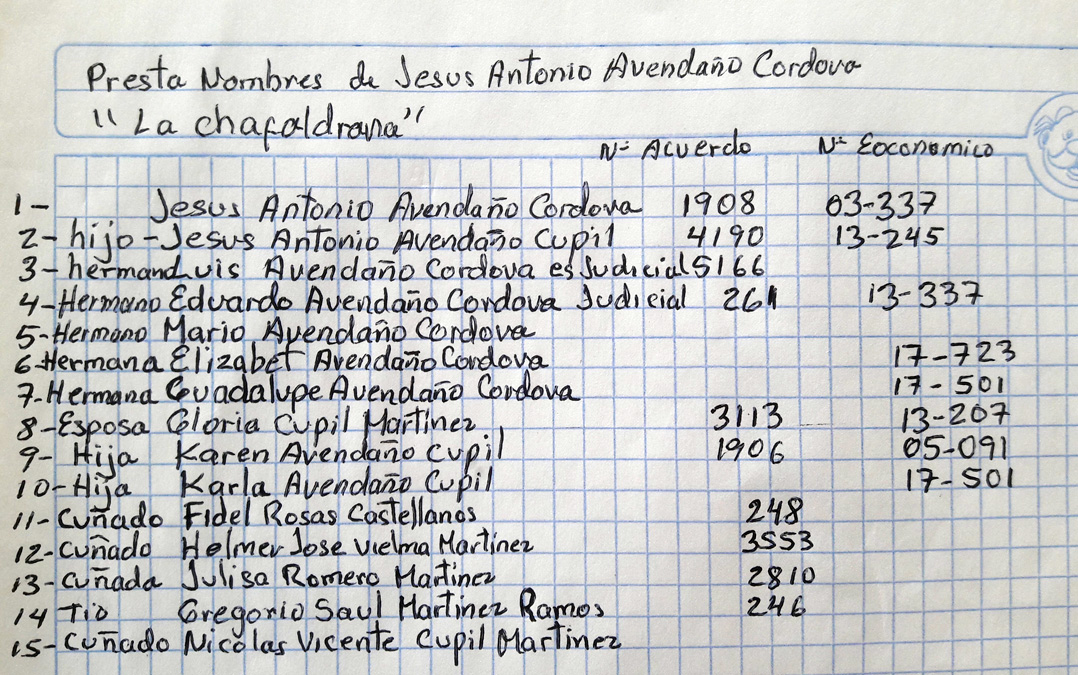 Presta Nombres de Jesus Antonio Avendaño Cordova
"La chafaldrana"
N= Acuerdo N= Eoconomico
1- Jesus Antonio Avendaño Cordova 1908 03-337
2- hijo-Jesus Antonio Avendaño Cupil 4190 13-245
3-hermanLuis Avendaño Cordova es Judicial 5166
4-Hermano Eduardo Avendaño Cordova Judicial 261 13-337
5-Hermano Mario Avendaño Cordova
6-Hermana Elizabet Avendaño Cordova 17-723
7-Hermana Guadalupe Avendaño Cordova 17-501
8-Esposa Gloria Cupil Martinez 3113 13-207
9- Hija Karen Avendaño Cupil 1906 05-091
10-Hija Karla Avendaño Cupil 17-501
11-Cuñado Fidel Rosas Castellanos 248
12-cuñado Holmer Jose Vielma Martinez 3553
13-cuñada Julisa Romero Martinez 2810
14 Tio Gregorio Saul Martinez Ramos 246
15-Cuñado Nicolas Vicente Cupil Martinez